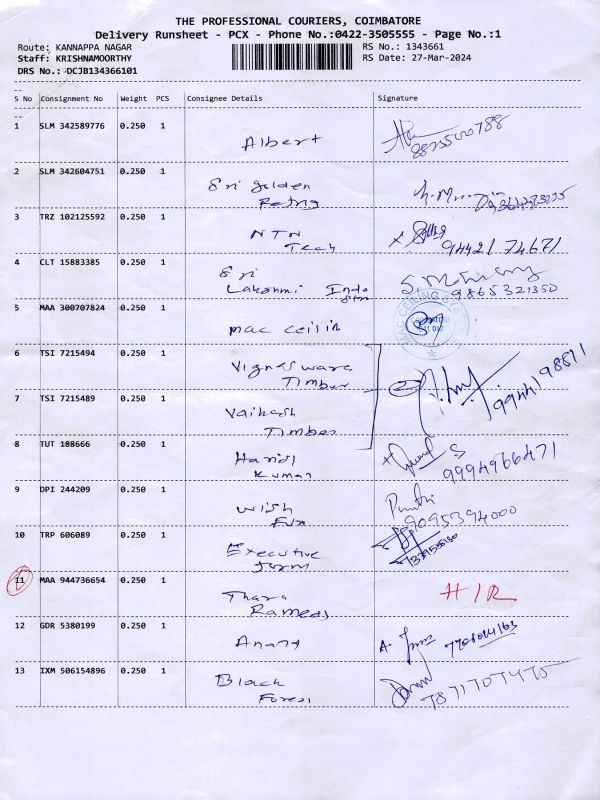 THE PROFESSIONAL COURIERS, COIMBATORE
Delivery Runsheet - PCX - Phone No.:0422-3505555 - Page No.:1
Route: KANNAPPA NAGAR RS No.: 1343661
Staff: KRISHNAMOORTHY RS Date: 27-Mar-2024
DRS No.: DCJB134366101
S No Consignment No Weight PCS Consignee Details Signature
1 SLM 342589776 0.250 1
Albert
2 SLM 342604751 0.250 1
Sri golden
3 TRZ 102125592 0.250 1
NTN
Tech 94421 74671
4 CLT 15883385 0.250 1
Sri
Lakshmi Indo 9865321350
5 MAA 300707824 0.250 1
MAC CEILING
mac
6 TSI 7215494 0.250 1
Vigneswara
Timber
7 TSI 7215489 0.250 1
9944198811
Timber
8 TUT 188666 0.250 1
Kumar 9994966471
9 DPI 244209 0.250 1
Wish
9095394000
10 TRP 606089 0.250 1
Executive
11 MAA 944736654 0.250 1
Thara H/R
12 GDR 5380199 0.250 1
Anand A.
13 IXM 506154896 0.250 1
Black
Forest